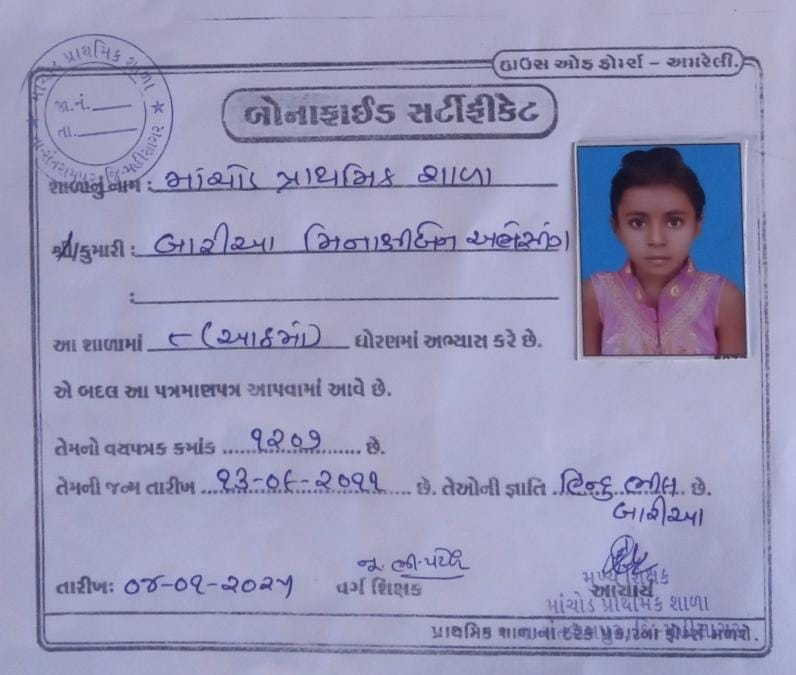 હાઉસ ઓફ ફોર્મ્સ - અમરેલી.
માંચોડ પ્રાથમિક શાળા
જા.નં.
તા.
તા-સંતરામપુર જિ-મહીસાગર
બોનાફાઈડ સર્ટીફીકેટ
શાળાનું નામ : માંચોડ પ્રાથમિક શાળા
શ્રી/કુમારી : બારીઆ મિનાક્ષીબેન અભેસીંગ
:
આ શાળામાં ૮ (આઠમાં) ધોરણમાં અભ્યાસ કરે છે.
એ બદલ આ પત્રમાણપત્ર આપવામાં આવે છે.
તેમનો વયપત્રક કમાંક ૧૨૦૭ છે.
તેમની જન્મ તારીખ ૧૩-૦૬-૨૦૧૧ છે. તેઓની જ્ઞાતિ હિન્દુ ભીલ છે.
બારીઆ
તારીખઃ ૦૪-૦૧-૨૦૨૫
વર્ગ શિક્ષક
મુખ્ય શિક્ષક
આચાર્ય
માંચોડ પ્રાથમિક શાળા
પ્રાથમિક શાળાનાં દરેક પ્રકારના ફોર્મ્સ મળશે.